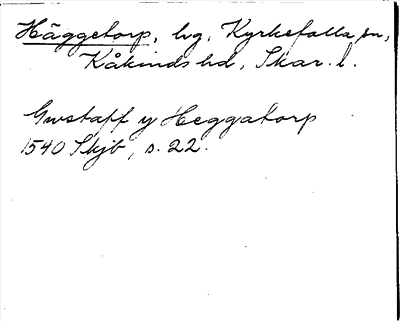 Häggetorp, hg, Kyrkefalla sn,
Kåkinds hd, Skar. l.
Gwstaff y Heggatorp
1540 Skjb, s. 22.